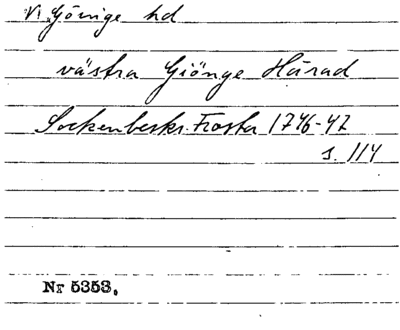 V. Göinge hd
västra Giönge Härad
Sockenbeskr. Frosta 1746-47
s. 114
Nr 5353.